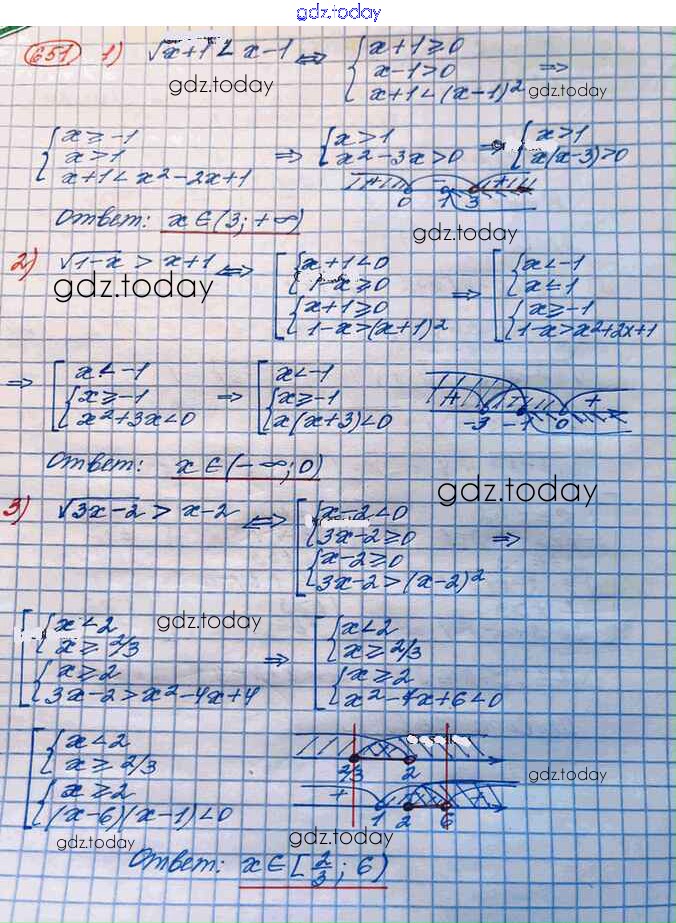 gdz.today
651 1) √x+1 < x-1 ⇔ { x+1≥0
x-1>0 ⇒
x+1<(x-1)²
gdz.today gdz.today
{ x≥-1
x>1
x+1<x²-2x+1
⇒ { x>1
x²-3x>0
⇒ { x>1
x(x-3)>0
+ - + 0 1 3
Ответ: x∈(3;+∞)
gdz.today
2) √1-x > x+1 ⇔ [ { x+1<0
x≥0
{ x+1≥0
1-x>(x+1)²
⇒ [ { x<-1
x≤1
{ x≥-1
1-x>x²+2x+1
gdz.today
⇒ [ x<-1
{ x≥-1
x²+3x<0
⇒ [ x<-1
{ x≥-1
x(x+3)<0
+ - + -3 -1 0
Ответ: x∈(-∞;0)
gdz.today
3) √3x-2 > x-2 ⇔ [ { x-2<0
3x-2≥0
{ x-2≥0
3x-2>(x-2)²
⇒
gdz.today
[ { x<2
x≥2/3
{ x≥2
3x-2>x²-4x+4
⇒ [ { x<2
x≥2/3
{ x≥2
x²-7x+6<0
[ { x<2
x≥2/3
{ x≥2
(x-6)(x-1)<0
2/3 2
+ - + 1 2 6
gdz.today
gdz.today gdz.today
Ответ: x∈[2/3; 6)